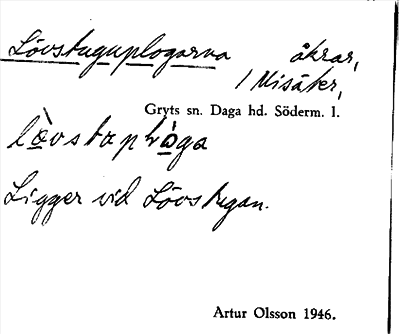 Lövstuguplogarna åkrar,
/ Misäker,
Gryts sn. Daga hd. Söderm. l.
Ligger vid Lövstugan.
Artur Olsson 1946.